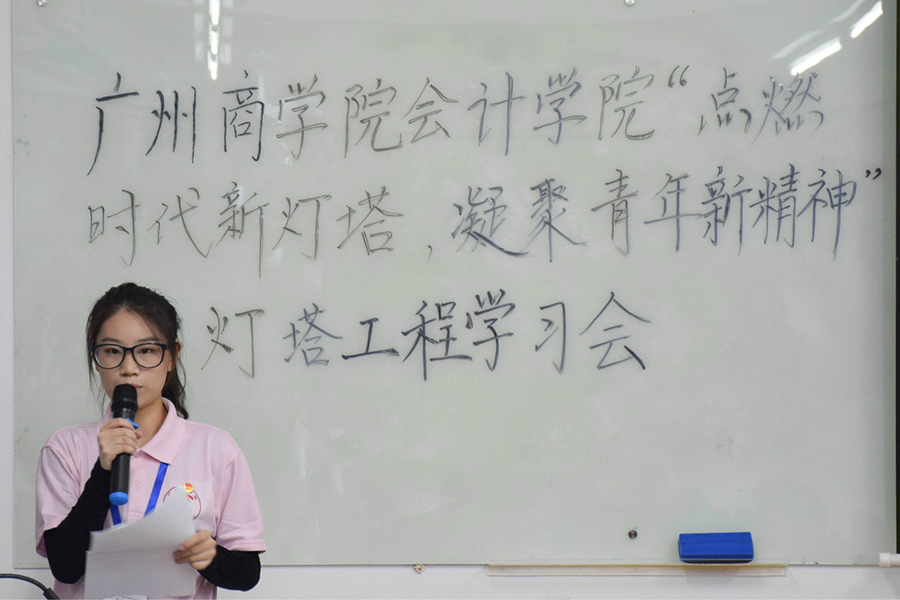 广州商学院会计学院“点燃
时代新灯塔，凝聚青年新精神”
灯塔工程学习会